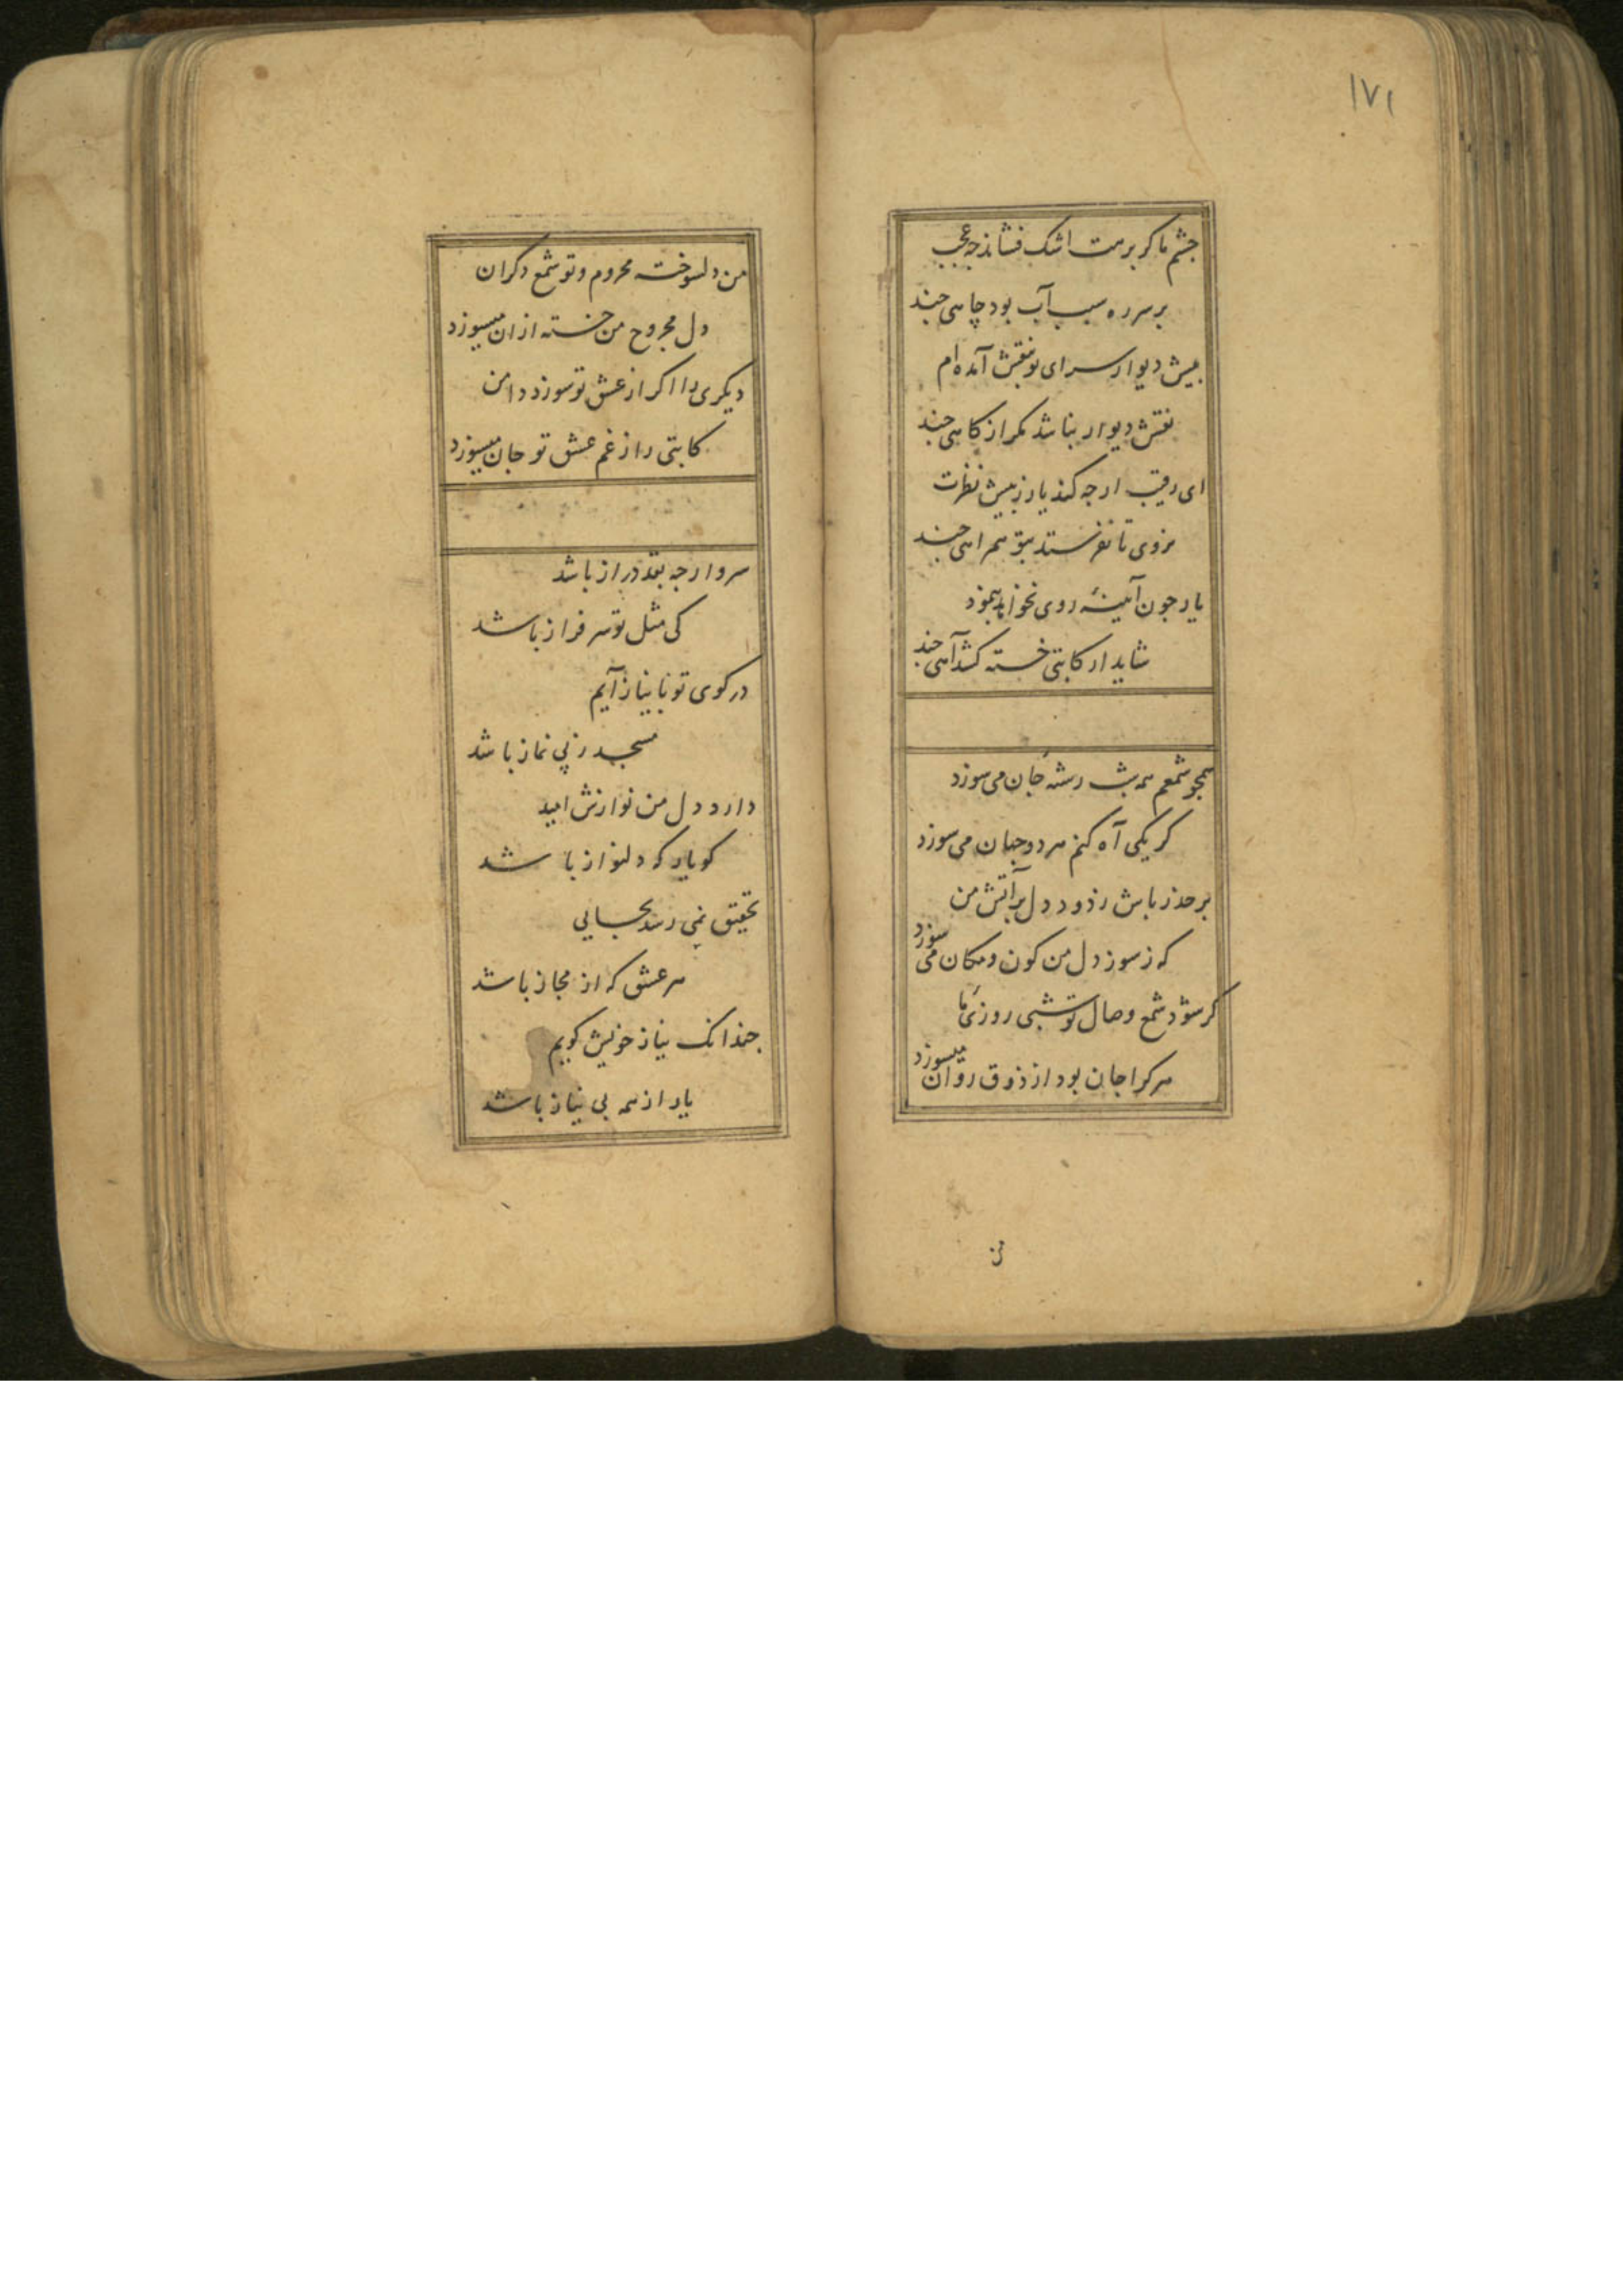 ۱۷۱
جشم ما کر برهت اشک فشاند چه عجب
بر سر ره سبب آب بود چاهی جند
بیش دیوار سرای تو بنقش آمده ام
نقش دیوار نباشد مکر از کاهی جند
ای رقیب ارجه کند یار ز بیش نظرت
نروی تا نفرستد بتو همراهی جند
یار جون آینهٔ روی نخواهد بنمود
شاید ار کاتبی خسته کشد آهی جند
همجو شمعم همه شب رشتهٔ جان می سوزد
کر یکی آه کنم هر دو جهان می سوزد
بر حذر باش ز دود دل بر آتش من
که ز سوز دل من کون و مکان می سوزد
کر شود شمع وصال تو شبی روزی ما
هر کرا جان بود از ذوق روان میسوزد
من
من دلسوخته محروم و تو شمع دکران
دل مجروح من خسته از ان میسوزد
دیکری را اکر از عشق تو سوزد دامن
کاتبی را ز غم عشق تو جان میسوزد
سرو ارجه بقد دراز باشد
کی مثل تو سرفراز باشد
در کوی تو با نیاز آیم
مسجد ز پی نماز باشد
دارد دل من نوازش امید
کو یار که دلنواز باشد
تحقیق نمی رسد بجایی
هر عشق که از مجاز باشد
جندانک نیاز خویش کویم
یار از همه بی نیاز باشد